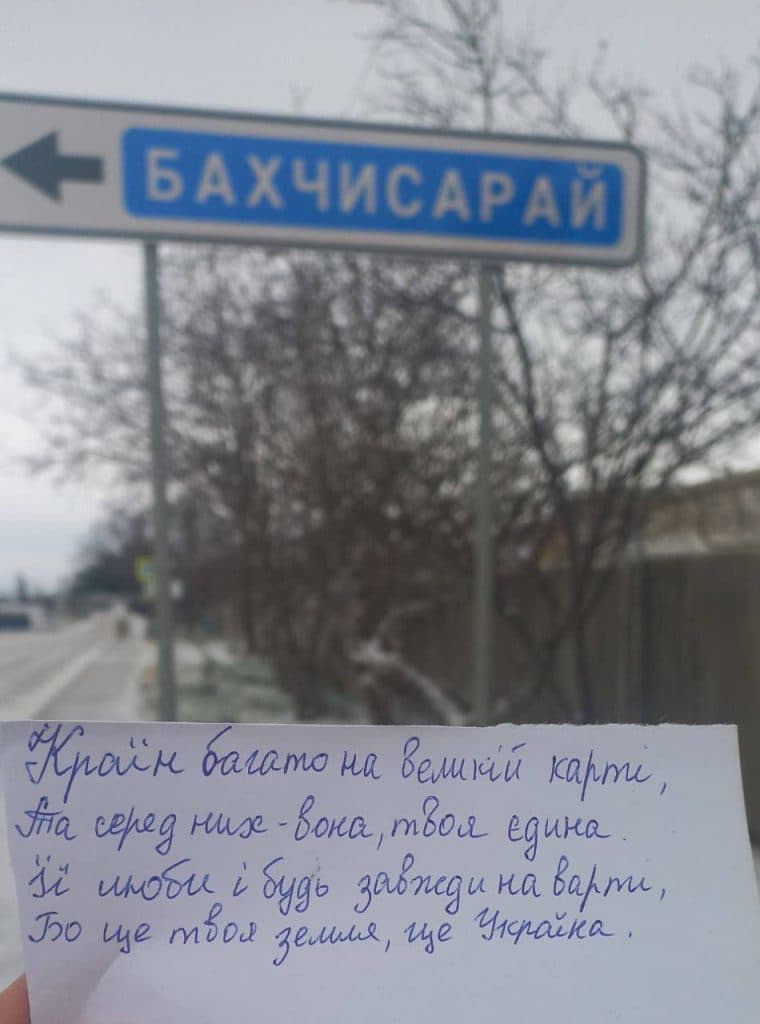 БАХЧИСАРАЙ
Країн багато на великій карті,
Та серед них - вона, твоя єдина.
Її люби і будь завжди на варті,
Бо це твоя земля, це Україна.